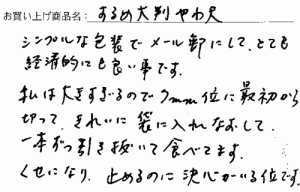 お買い上げ商品名： するめ大判やわ尺
シンプルな包装でメール卸にして、とても
経済的にも良い事です。
私は大きすぎるので7mm位に最初から
切って、きれいに袋に入れなおして、
一本ずつ引き抜いて食べてます。
くせになり、止めるのに決心がいる位です。